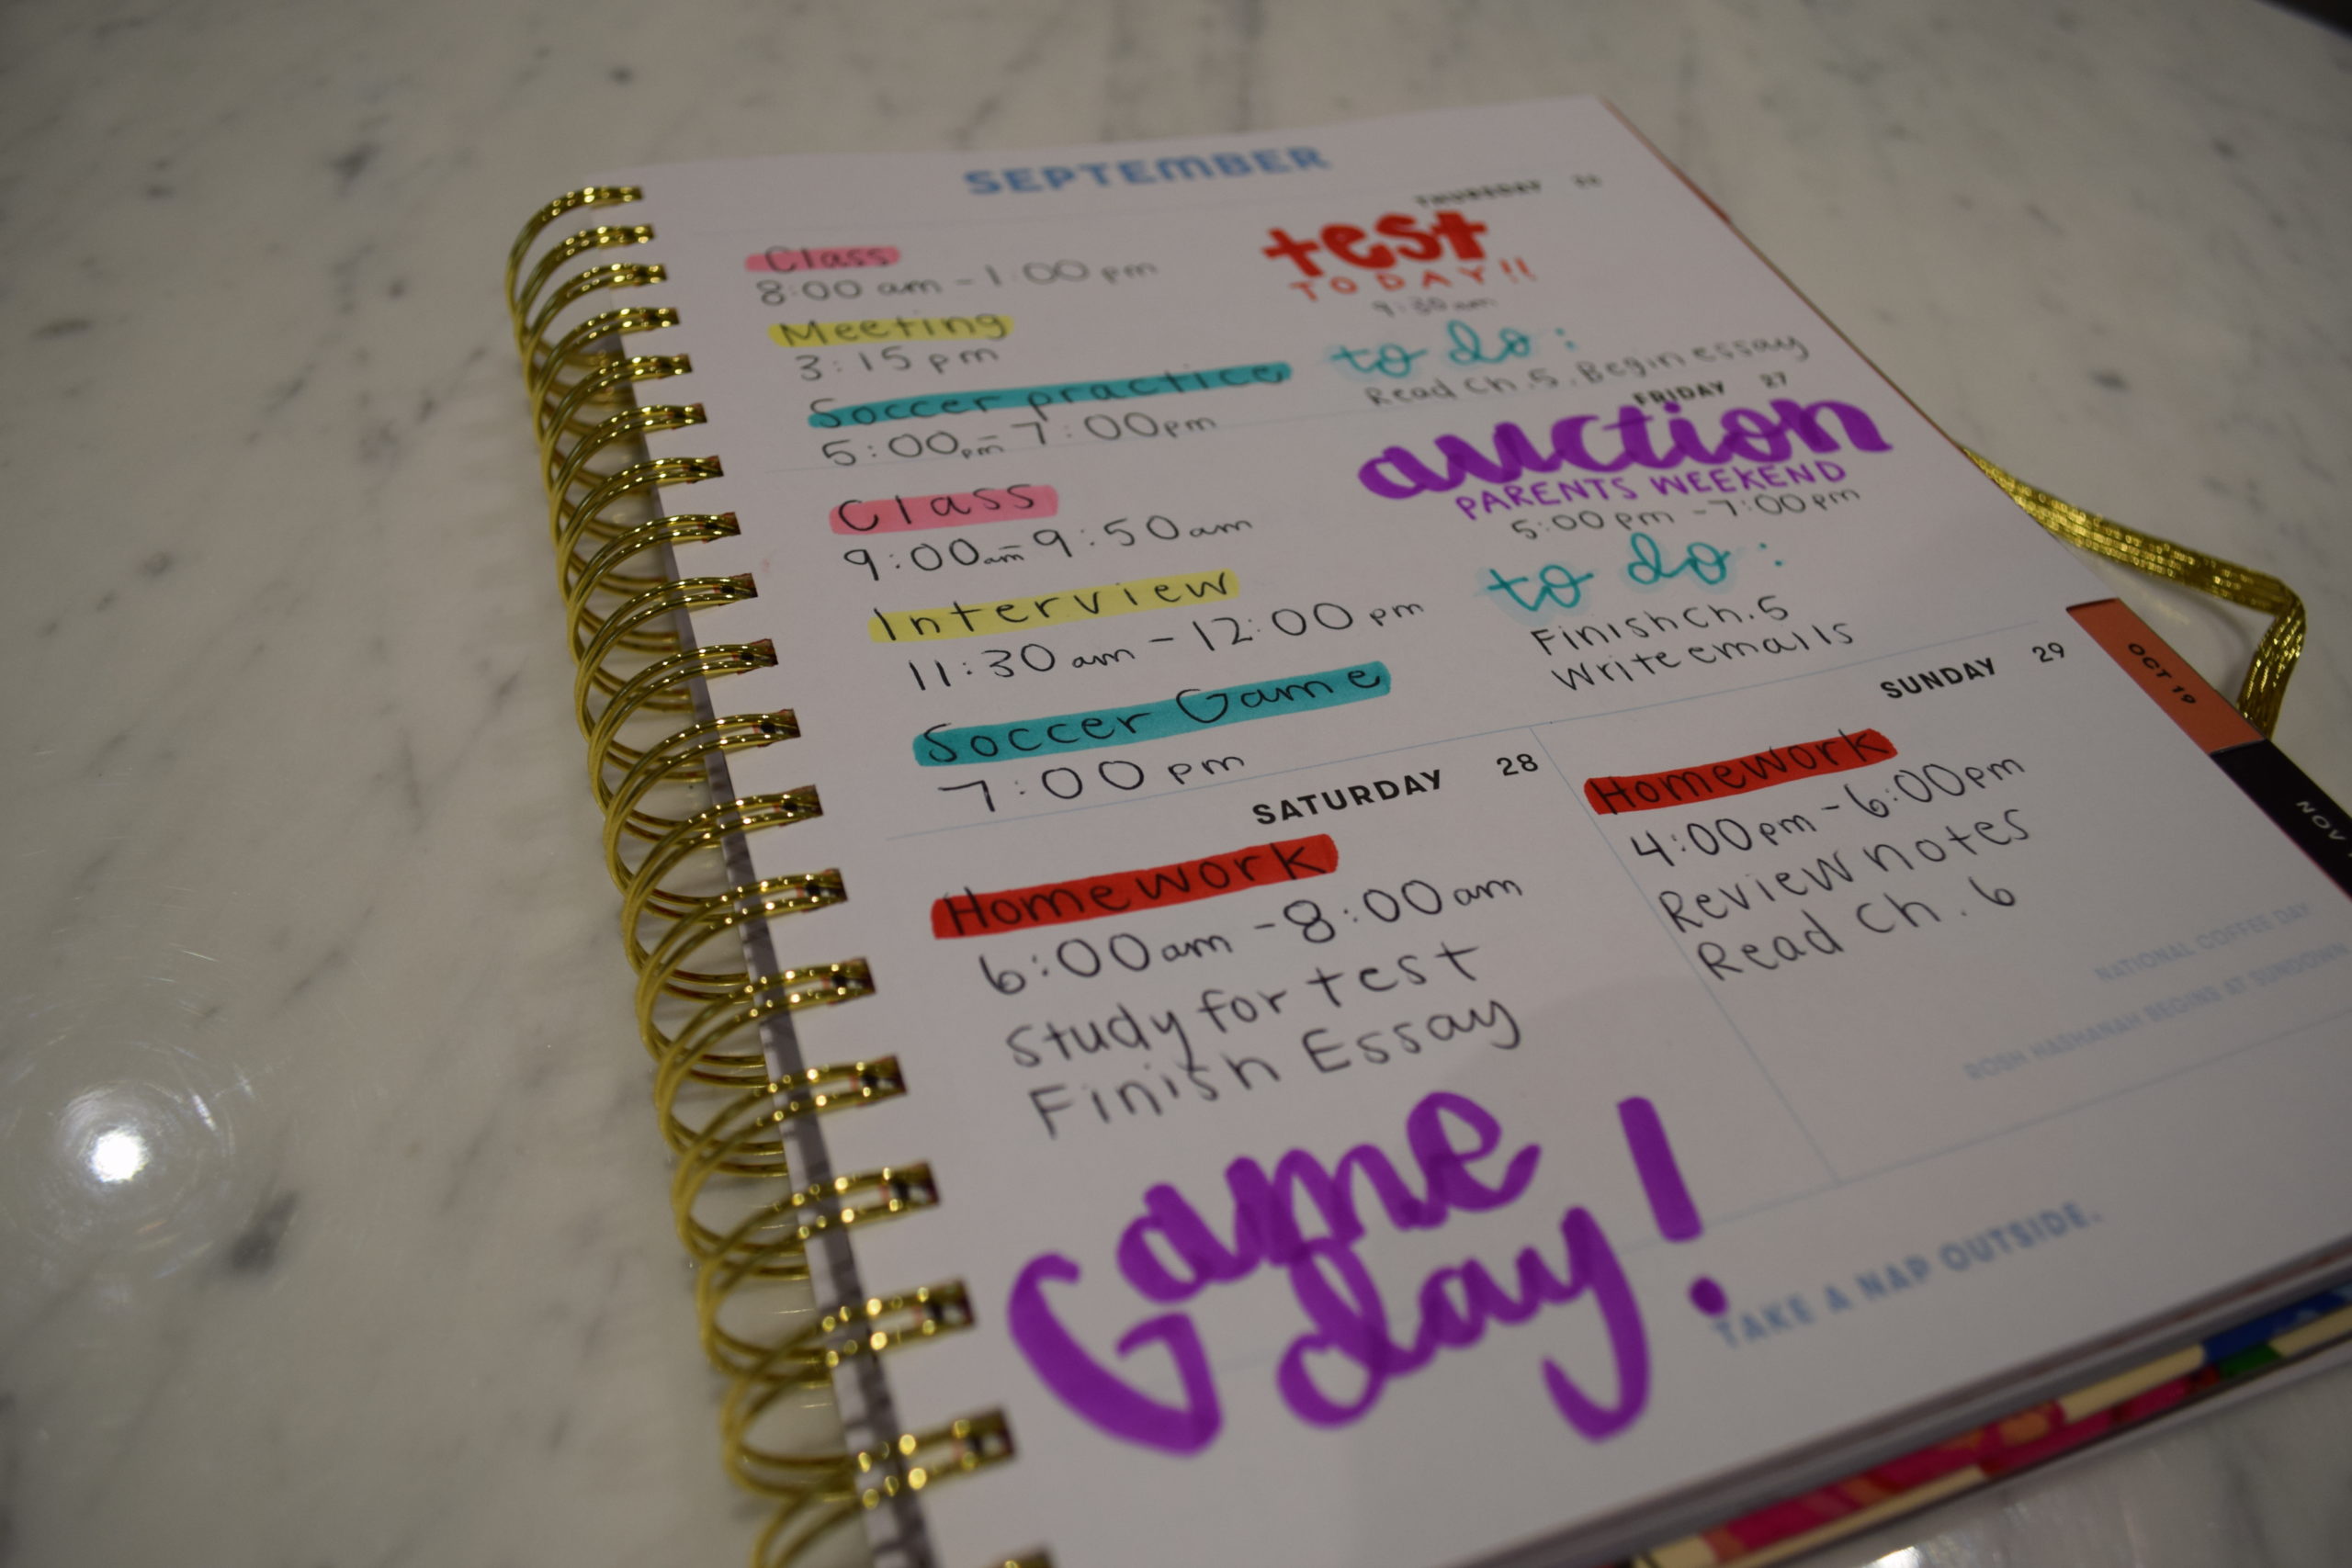 SEPTEMBER
THURSDAY 26
Class
8:00 am - 1:00 pm
Meeting
3:15 pm
Soccer practice
5:00pm - 7:00pm
test
TODAY!!
9:30am
to do:
Read Ch. 5, Begin essay
FRIDAY 27
Class
9:00am - 9:50am
Interview
11:30 am - 12:00 pm
Soccer Game
7:00 pm
auction
PARENTS WEEKEND
5:00 pm - 7:00 pm
to do:
Finish Ch. 5
Write emails
SATURDAY 28
Homework
6:00am - 8:00am
Study for test
Finish Essay
Game
day!
SUNDAY 29
Homework
4:00pm - 6:00pm
Review notes
Read Ch. 6
NATIONAL COFFEE DAY
ROSH HASHANAH BEGINS AT SUNDOWN
TAKE A NAP OUTSIDE.
OCT 19
NOV